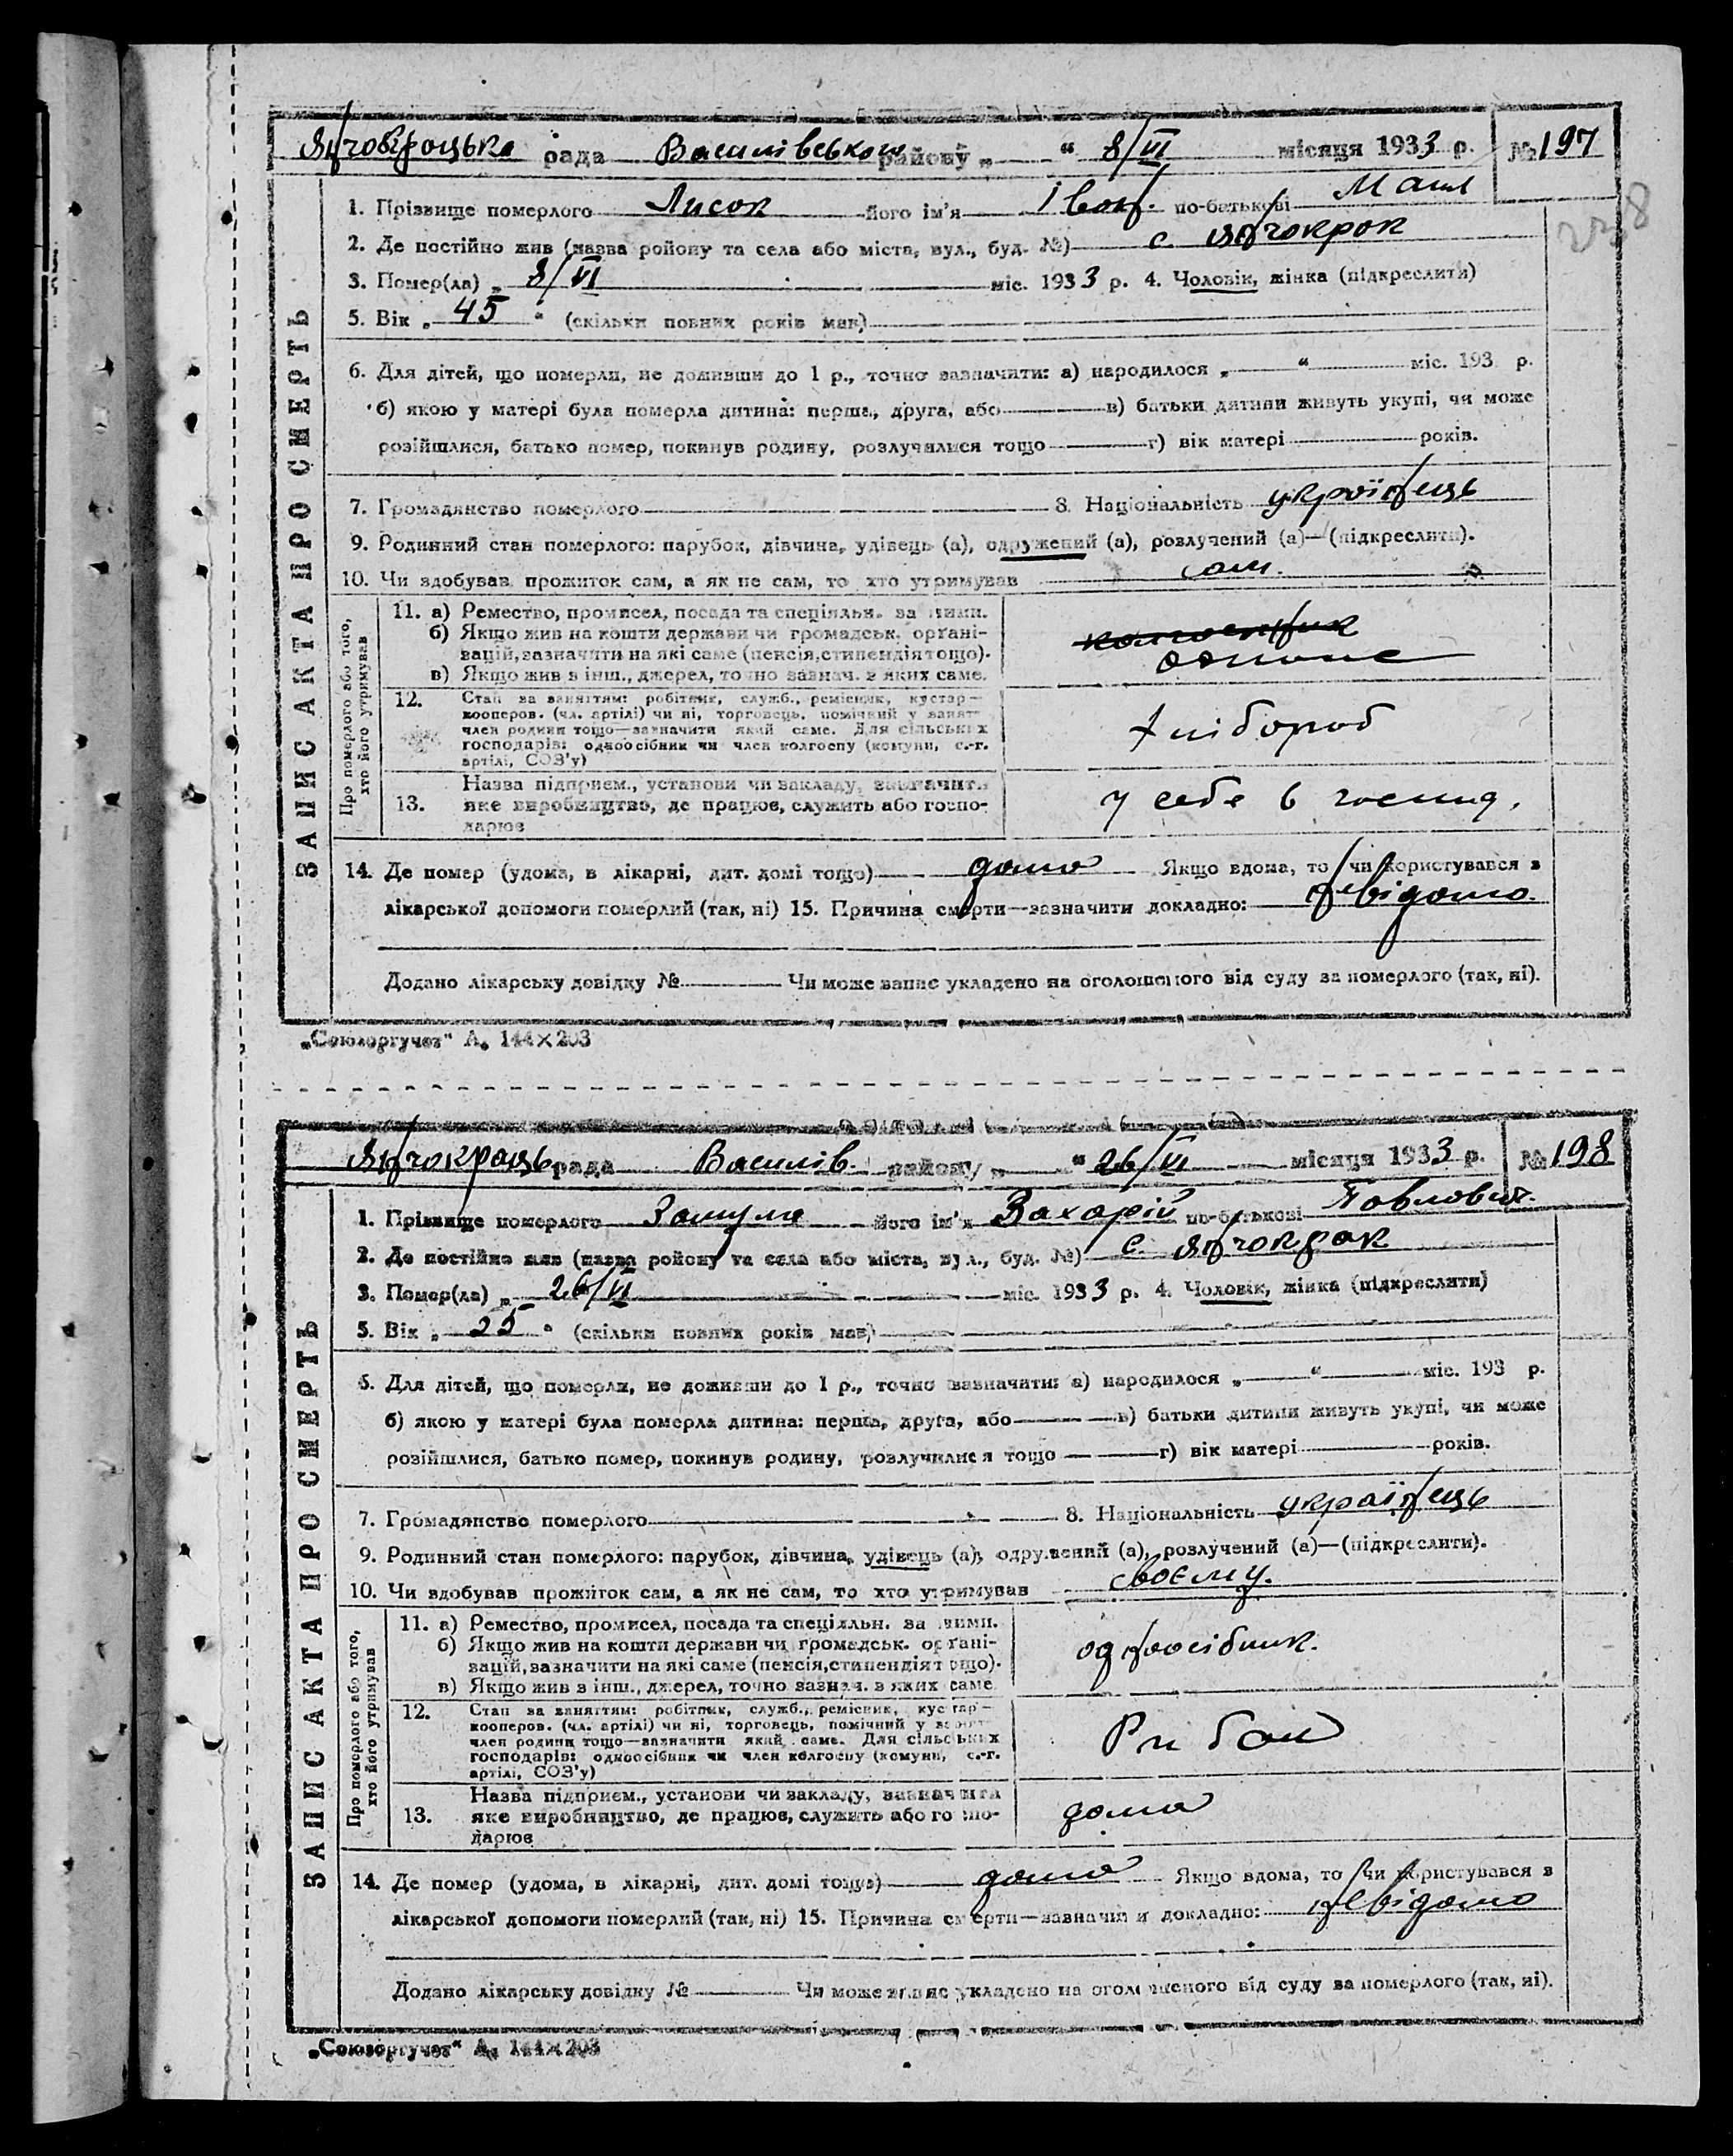 Янчокрацька рада Василівського району „ “ 8/VI місяця 1933 р. № 197
1. Прізвище померлого Лисок його ім'я Іван по-батькові
2. Де постійно жив (назва ройону та села або міста, вул., буд. №) с. Янчокрак
3. Помер(ла) „ 8/VI міс. 1933 р. 4. Чоловік, жінка (підкреслити)
5. Вік „ 45 “ (скільки повних років мав)
6. Для дітей, що померли, не доживши до 1 р., точно зазначити: а) народилося „ “ міс. 193 р.
б) якою у матері була померла дитина: перша, друга, або в) батьки дитини живуть укупі, чи може
розійшлися, батько помер, покинув родину, розлучилися тощо г) вік матері років.
7. Громадянство померлого 8. Національність українець
9. Родинний стан померлого: парубок, дівчина, удівець (а), одружений (а), розлучений (а)—(підкреслити).
10. Чи здобував прожиток сам, а як не сам, то хто утримував сам.
ЗАПИС АКТА ПРО СМЕРТЬ
Про померлого або того, хто його утримував
11. а) Ремество, промисел, посада та спеціяльн. за ними.
б) Якщо жив на кошти держави чи громадськ. орґані-
зацій, зазначити на які саме (пенсія, стипендія тощо).
в) Якщо жив з інш., джерел, точно зазнач. з яких саме.
колгоспник
12. Стан за заняттям: робітник, служб., ремісник, кустар—
кооперов. (чл. артілі) чи ні, торговець, помічний у занят—
член родини тощо—зазначити який саме. Для сільських
господарів: одноосібник чи член колгоспу (комуни, с.-г.
артілі, СОЗ'у)
хлібороб
13. Назва підприєм., установи чи закладу, зазначити
яке виробництво, де працює, служить або госпо-
дарює
у себе в господ.
14. Де помер (удома, в лікарні, дит. домі тощо) дома Якщо вдома, то чи користувався з
лікарської допомоги померлий (так, ні) 15. Причина смерти—зазначити докладно: невідомо.
Додано лікарську довідку № Чи може запис укладено на оголошеного від суду за померлого (так, ні).
„Союзоргучет“ А. 144×203
Янчокраць рада Василів. району „ “ 26/VI місяця 1933 р. № 198
1. Прізвище померлого Замула його ім'я Захарій по-батькові Павлович.
2. Де постійно жив (назва ройону та села або міста, вул., буд. №) с. Янчокрак
3. Помер(ла) „ 26/VI міс. 1933 р. 4. Чоловік, жінка (підкреслити)
5. Вік „ 25 “ (скільки повних років мав)
6. Для дітей, що померли, не доживши до 1 р., точно зазначити: а) народилося „ “ міс. 193 р.
б) якою у матері була померла дитина: перша, друга, або в) батьки дитини живуть укупі, чи може
розійшлися, батько помер, покинув родину, розлучилися тощо г) вік матері років.
7. Громадянство померлого 8. Національність українець
9. Родинний стан померлого: парубок, дівчина, удівець (а), одружений (а), розлучений (а)—(підкреслити).
10. Чи здобував прожиток сам, а як не сам, то хто утримував своєму.
ЗАПИС АКТА ПРО СМЕРТЬ
Про померлого або того, хто його утримував
11. а) Ремество, промисел, посада та спеціяльн. за ними.
б) Якщо жив на кошти держави чи громадськ. орґані-
зацій, зазначити на які саме (пенсія, стипендія тощо).
в) Якщо жив з інш., джерел, точно зазнач. з яких саме
одноосібник.
12. Стан за заняттям: робітник, служб., ремісник, кустар—
кооперов. (чл. артілі) чи ні, торговець, помічний у занят—
член родини тощо—зазначити який саме. Для сільських
господарів: одноосібник чи член колгоспу (комуни, с.-г.
артілі, СОЗ'у)
13. Назва підприєм., установи чи закладу, зазначити
яке виробництво, де працює, служить або госпо-
дарює
дома
14. Де помер (удома, в лікарні, дит. домі тощо) дома Якщо вдома, то чи користувався з
лікарської допомоги померлий (так, ні) 15. Причина смерти—зазначити докладно: невідомо
Додано лікарську довідку № Чи може запис укладено на оголошеного від суду за померлого (так, ні).
„Союзоргучет“ А. 144×203